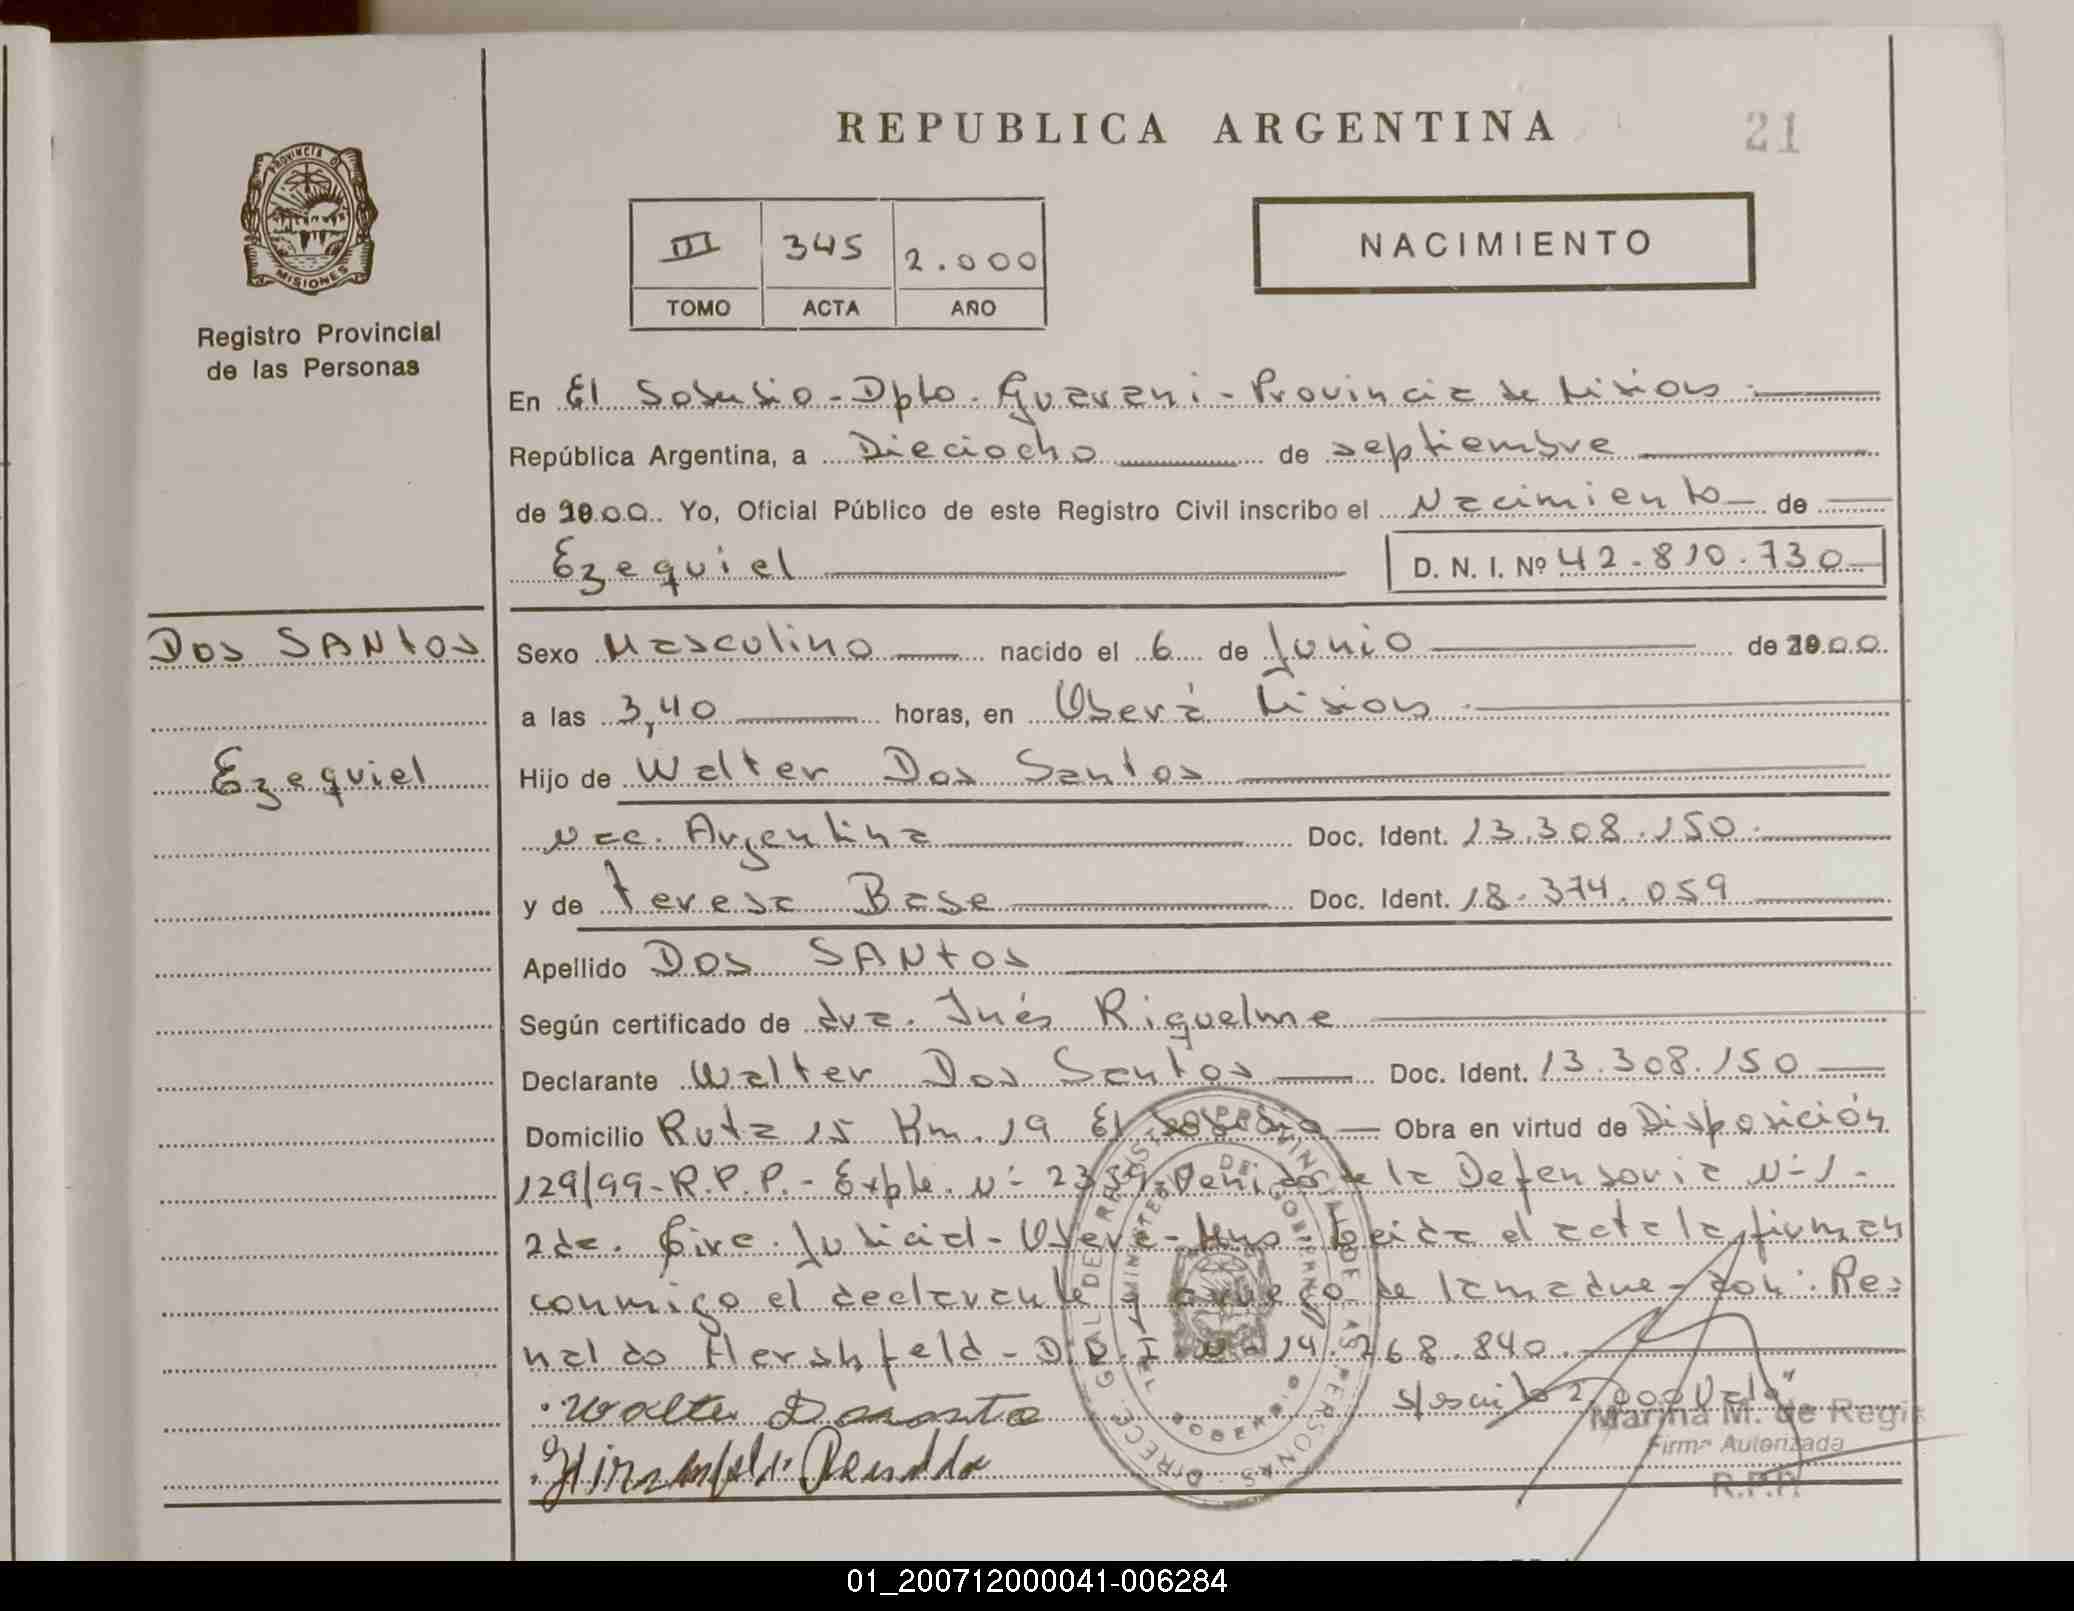 REPUBLICA ARGENTINA
21
PROVINCIA D
MISIONES
Registro Provincial
de las Personas
III 345 2.000
TOMO ACTA AÑO
NACIMIENTO
En El Soberbio - Dpto. Guarani - Provincia de Misiones
República Argentina, a Dieciocho de septiembre
de 2000. Yo, Oficial Público de este Registro Civil inscribo el Nacimiento de
Ezequiel D. N. I. Nº 42.810.730
DOS SANtOS
Ezequiel
Sexo Masculino nacido el 6 de Junio de 2000
a las 3,40 horas, en Oberá Misiones
Hijo de Walter Dos Santos
Nac. Argentina Doc. Ident. 13.308.150
y de teresa Base Doc. Ident. 18.374.059
Apellido DOS SANtOS
Según certificado de dra. Inés Riquelme
Declarante Walter Dos Santos Doc. Ident. 13.308.150
Domicilio Ruta 15 Km. 19 El Soberbio Obra en virtud de Disposición
129/99-R.P.P.- Expte. Nº 2359- de la Defensoria Nº 1-
2da. Circ. Judicial - Oberá - Mns Leida el acta la firman
conmigo el declarante y a ruego de la madre - don: Rei
naldo Hershfeld - D.N.I. Nº 14.268.840.
Walter
s/ 2.000 Vale
Marina M. de Regi
Firma Autorizada
R.P.P.
01_200712000041-006284